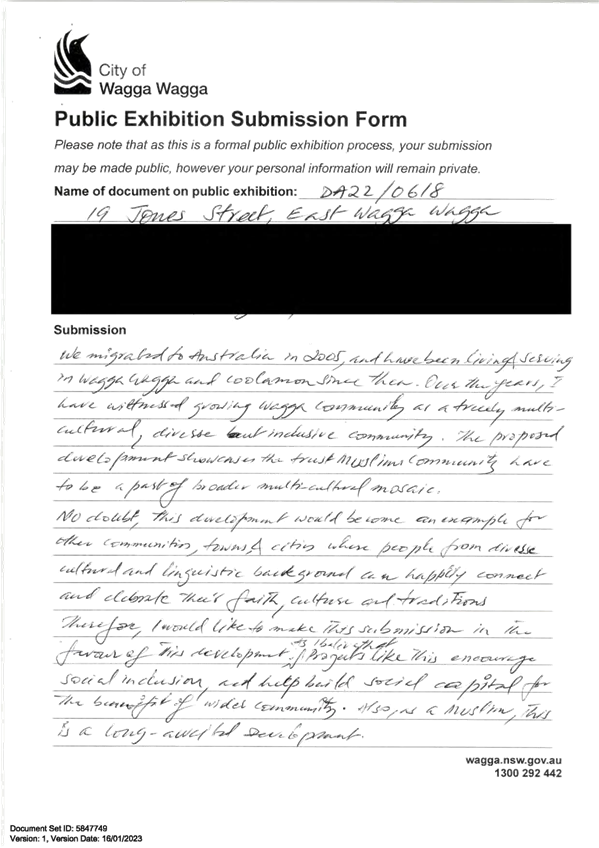 City of
Wagga Wagga
Public Exhibition Submission Form
Please note that as this is a formal public exhibition process, your submission
may be made public, however your personal information will remain private.
Name of document on public exhibition: DA22/0618
19 Jones Street, East Wagga Wagga
Submission
We migrated to Australia in 2005, and have been living & serving
in Wagga Wagga and Coolamon since then. Over the years, I
have witnessed growing Wagga Community as a truely multi-
cultural, diverse but inclusive community. The proposed
development showcases the trust Muslims Community have
to be a part of broader multi-cultural mosaic.
No doubt, this development would become an example for
other communities, towns & cities where people from diverse
cultural and linguistic background can happily connect
and celebrate their faith, culture and traditions
Therefore, I would like to make this submission in the
favour of this development. as I believe that Projects like this encourage
social inclusion, and help build social capital for
the benefit of wider community. Also, as a Muslim, this
is a long-awaited development.
wagga.nsw.gov.au
1300 292 442
Document Set ID: 5847749
Version: 1, Version Date: 16/01/2023